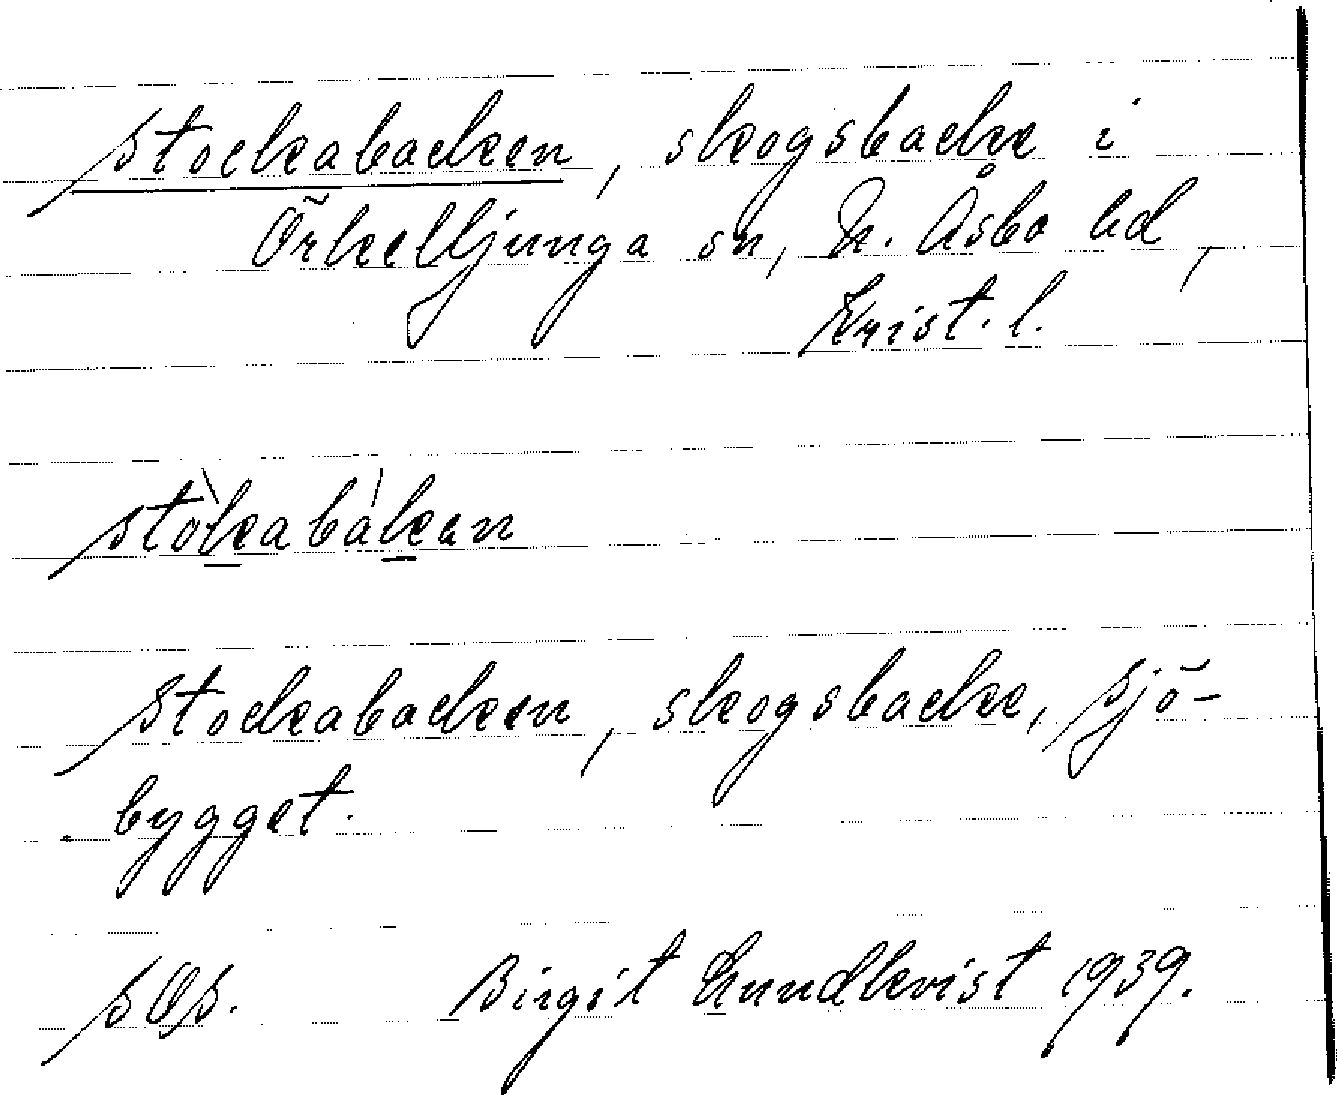 Stockabacken, skogsbacke i
Örkelljunga sn, N. Åsbo hd,
Krist. l.
stòkabàkan
Stockabacken, skogsbacke, Sjö-
bygget.
Birgit Lundkvist 1939.